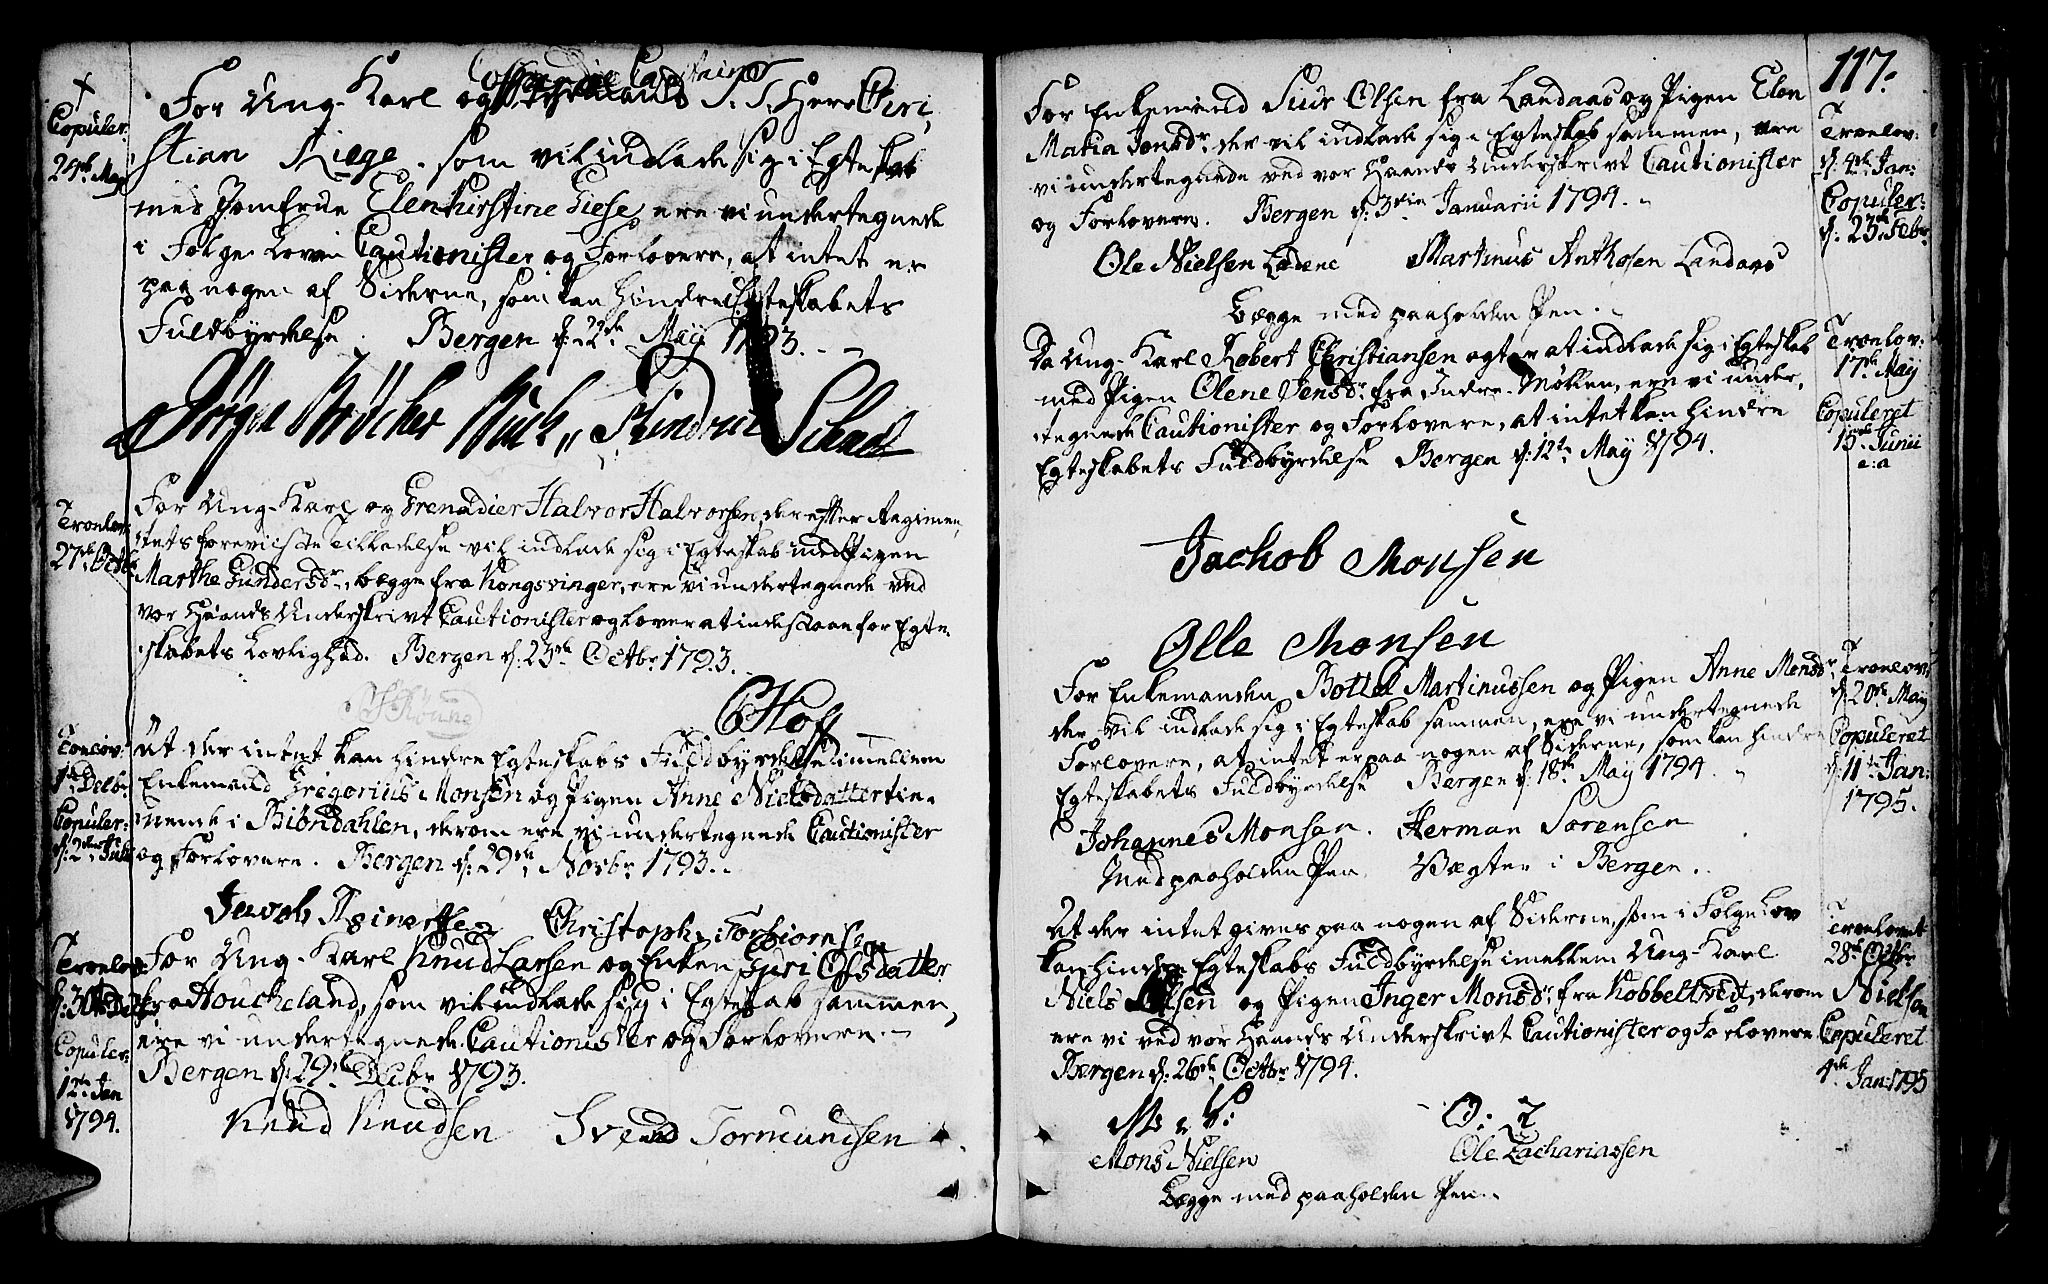 †
Copuler:
29de May
Cofferdie Captaine
For Ung-Karl og S. T. Herr Chri,
stian Kiege. som vil indlade sig i Egteskab
med Jomfrue Elenkirstine Giese, ere vi undertegnede
i Følge Loven Cautionister og Forlovere, at intet er
paa nogen af Siderne, som kan hindre Egteskabets
Fuldbyrdelse. Bergen d: 22de May 1793.
Jørgen Bröcher Buck Hindrich Schad
Troelov:
27de Octbr
For Ung-Karl og Grenadier Halvor Halvorsen, der efter Regimen,
tets foreviiste Tilladelse vil indlade sig i Egteskab med Pigen
Marthe Gundersdr, begge fra Kongsvinger, ere vi undertegnede ved
vor Haands Underskrivt Cautionister og lover at indestaae for Egte,
skabets Lovlighed. Bergen d: 23de Octbr: 1793.
CHoff
Troelov:
1de Decbr
Copuler:
At der intet kan hindre Egteskabs Fuldbyrdelse imellem
Enkemand Gregorius Monsen og Pigen Anne Nielsdatter tie,
nende i Biöndahlen, derom ere vi undertegnede Cautionister
og Forlovere. Bergen d: 29de Novbr: 1793.
Jacob Reinertsen Christopher Torbiornsen
Troelov:
d: 30de Decbr
Copuler:
12te Jan
1794.
For Ung-Karl Knud Larsen og Enken Guri Olsdatter
fra Houckeland, som vil indlade sig i Egteskab sammen,
ere vi undertegnede Cautionister og Forlovere.
Bergen d: 29de Decbr 1793.
Knud Knudsen Svend Tormundsen
117.
For Enkemand Siur Olsen fra Landaas og Pigen Elen
Maria Jonsdr. der vil indlade sig i Egteskab sammen, ere
vi undertegnede ved vor Haands Underskrivt Cautionister
og Forlovere. Bergen d: 3die Januarii 1794.
Ole Nielsen Ladene Martinus Anthosen Landaas
Begge med paaholden Pen.
Troelov:
d: 4de Jan:
Copuler:
d: 23de Febr
Da Ung-Karl Robert Christiansen agter at indlade sig i Egteskab
med Pigen Olene Jensdr. fra Indre-Møllen, ere vi under,
tegnede Cautionister og Forlovere, at intet kan hindre
Egteskabets Fuldbyrdelse Bergen d: 12te May 1794.
Jachob Monsen
Olle Monsen
Troelov:
17de May
Copuleret
15de Junii
e: a
For Enkemanden Bottel Martinussen og Pigen Anne Monsdr
der vil indlade sig i Egteskab sammen, ere vi undertegnede
Forlovere, at intet er paa nogen af Siderne, som kan hindre
Egteskabets Fuldbyrdelse Bergen d: 18de May 1794.
Johannes Monsen. Herman Sorensen
Med paaholden Pen. Vægter i Bergen.
Troelov:
d: 20de May
Copuleret
d: 11te Jan:
1795.
At der intet gives paa nogen af Siderne, som i Følge Lov
kan hindre Egteskabs Fuldbyrdelse imellem Ung-Karl
Niels Olsen og Pigen Inger Monsdr. fra Kobbeltvedt, derom
ere vi ved vor Haands Underskrivt Cautionister og Forlovere
Bergen d: 26de Octbr 1794.
M. N. S: O: Z
Mons Nielsen Ole Zachariassen
Begge med paaholden Pen.
Troelovet
28de Octbr
Nielsen
Copuleret
4de Jan: 1795